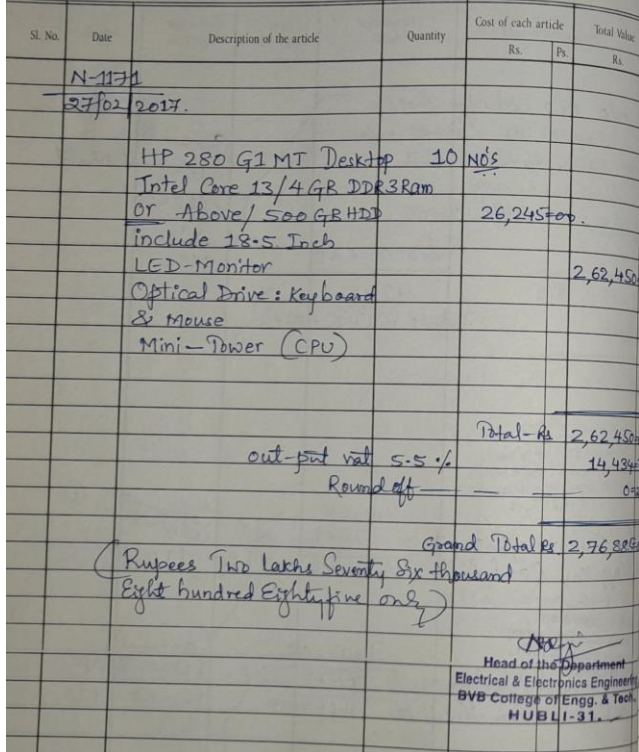 Sl. No. Date Description of the article Quantity Cost of each article Total Value
Rs. Ps. Rs.
N-1171
27/02/2017.
HP 280 G1 MT Desktop 10 NO's
Intel Core 13/4 GR DDR3 Ram
Or Above/ 500 GB HDD 26,245=00.
include 18.5 Inch
LED-Monitor 2,62,450
Optical Drive: Keyboard
& Mouse
Mini-Tower (CPU)
Total-Rs 2,62,450
Out-put vat 5.5 % 14,434
Round off — — —
Grand Total Rs 2,76,885
(Rupees Two Lakhs Seventy Six thousand
Eight hundred Eighty five only)
Head of the Department
Electrical & Electronics Engineering
BVB College of Engg. & Tech.
HUBLI-31.